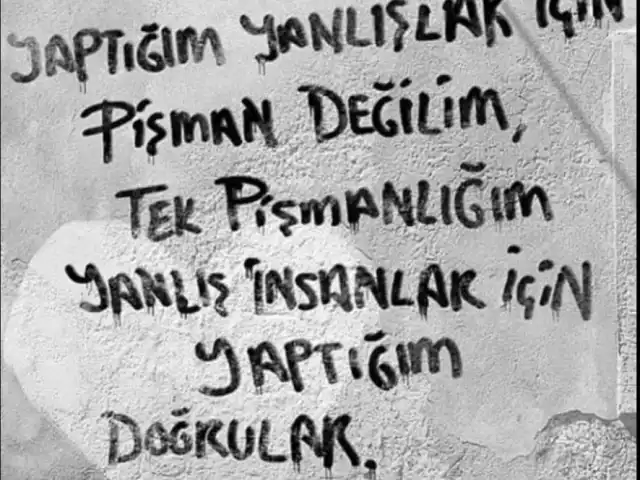 YAPTIĞIM YANLIŞLAR İÇİN
PİŞMAN DEĞİLİM,
TEK PİŞMANLIĞIM
YANLIŞ İNSANLAR İÇİN
YAPTIĞIM
DOĞRULAR.